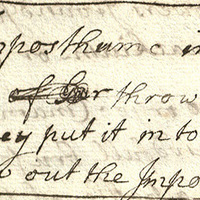 pposthume in
of Gr throw
ey put it in to
out the Impo